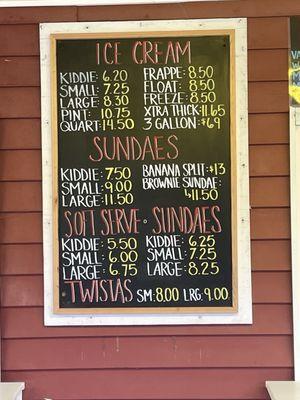 ICE CREAM
KIDDIE: 6.20
SMALL: 7.25
LARGE: 8.30
PINT: 10.75
QUART: 14.50
FRAPPE: 8.50
FLOAT: 8.50
FREEZE: 8.50
XTRA THICK: 11.65
3 GALLON: $69
SUNDAES
KIDDIE: 7.50
SMALL: 9.00
LARGE: 11.50
BANANA SPLIT: $13
BROWNIE SUNDAE:
$11.50
SOFT SERVE • SUNDAES
KIDDIE: 5.50
SMALL: 6.00
LARGE: 6.75
KIDDIE: 6.25
SMALL: 7.25
LARGE: 8.25
TWISTAS SM: 8.00 LRG: 9.00